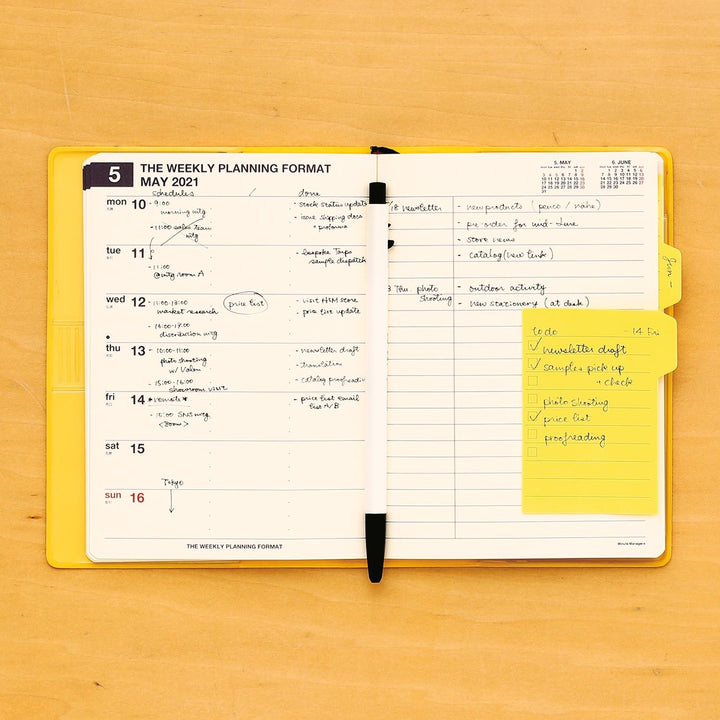 5
THE WEEKLY PLANNING FORMAT
MAY 2021
schedules / done
mon 10 - 9:00
morning mtg
- 11:00 sales team
mtg
- stock status update
- issue shipping docs
+ proforma
tue 11
- 11:00
@mtg room A
- bespoke
sample dispatch
wed 12 - 11:00-13:00
market research
price list
- 16:00-17:00
distribution mtg
- visit H&M store
- price list update
thu 13 - 10:00-11:00
photo shooting
w/
- 15:00-16:00
showroom visit
- newsletter draft
- translation
- catalog proofreadi
fri 14 *remote*
- 15:00 SNS mtg
<zoom>
- price list email
list A/B
sat 15
sun 16
Tokyo
THE WEEKLY PLANNING FORMAT
5. MAY
6. JUNE
18 newsletter
- new products (pence / nähe)
- pre-order for mid-June
- store news
- catalog (new link)
Thu. photo
shooting
- outdoor activity
- new stationery (at desk)
Jun -
to do - 14 Fri
newsletter draft
samples pick up
+ check
photo shooting
price list
proofreading